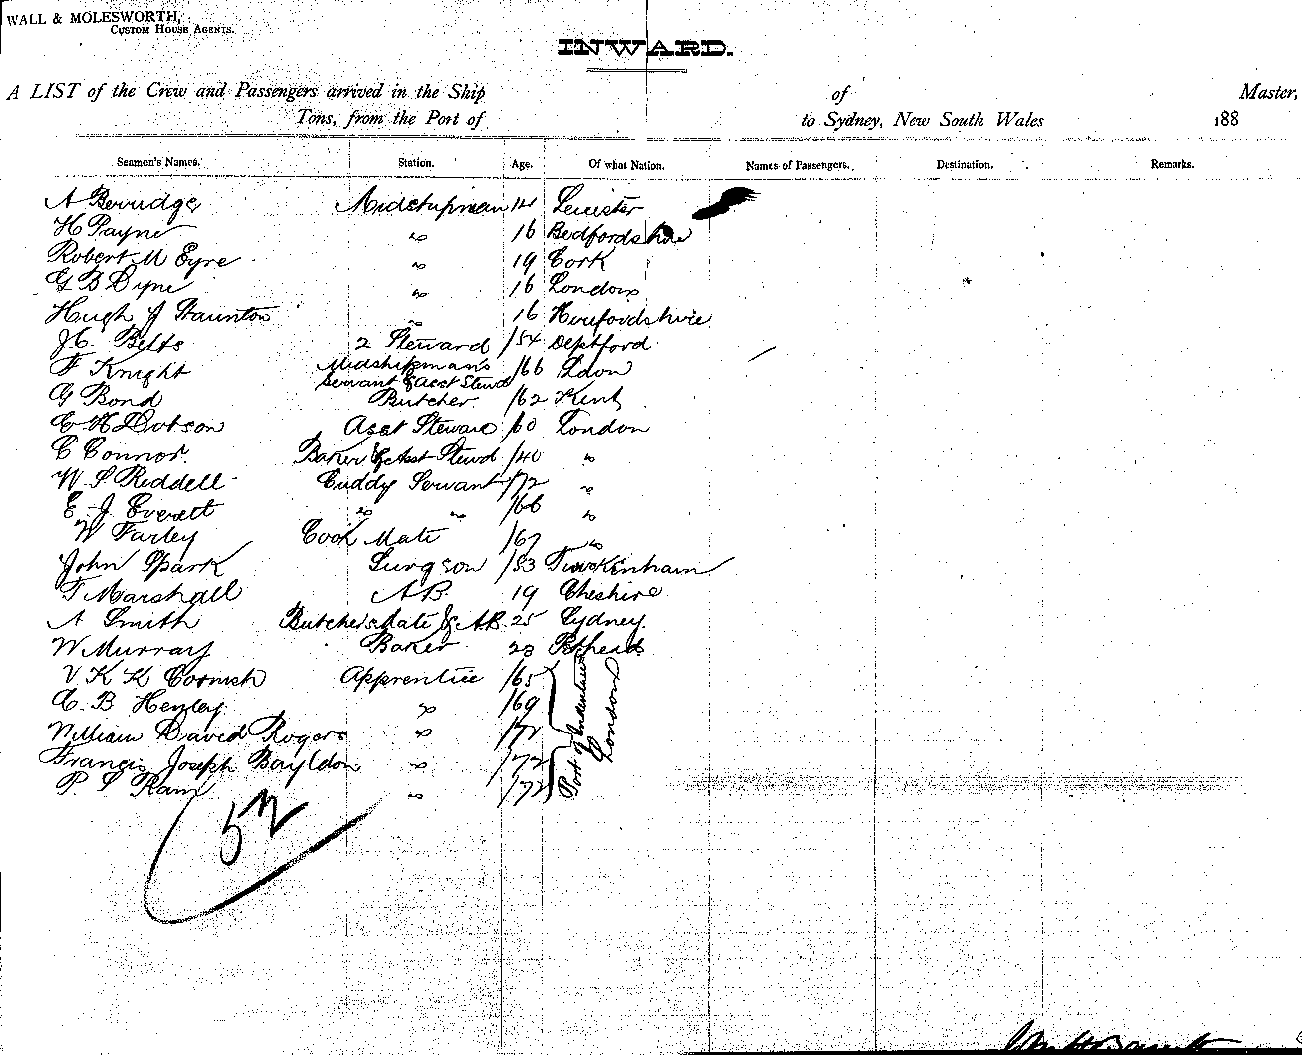 WALL & MOLESWORTH,
CUSTOM HOUSE AGENTS.
INWARD.
A LIST of the Crew and Passengers arrived in the Ship of Master,
Tons, from the Port of to Sydney, New South Wales 188
Seamen's Names. Station. Age. Of what Nation. Names of Passengers. Destination. Remarks.
A Beveridge Midshipman 14 Leicester
H Payne " 16 Bedfordshire
Robert M Eyre " 19 Cork
G B Dyne " 16 London
Hugh J Staunton " 16 Herefordshire
J C Betts 2 Steward /54 Deptford
F Knight Midshipman's /66 Ldon
Servant & Asst Stewd
G Bond Butcher /62 Kent
E H Dobson Asst Steward /60 London
C Connor. Baker & Asst Stewd /40 "
W S Riddell Cuddy Servant /72 "
E. J. Everett " " /66 "
W Farley Cook Mate /67 "
John Spark Surgeon /53 Twickenham
T Marshall A.B. 19 Cheshire
A Smith Butchers Mate & A.B. 25 Sydney.
W Murray Baker 23 Ptrhead
V K K Cornish Apprentice /65
C. B Henley " /69
William David Rogers " /72
Francis Joseph Bayldon " /72
P. S Ram " /72
Port of Indenture
London
52